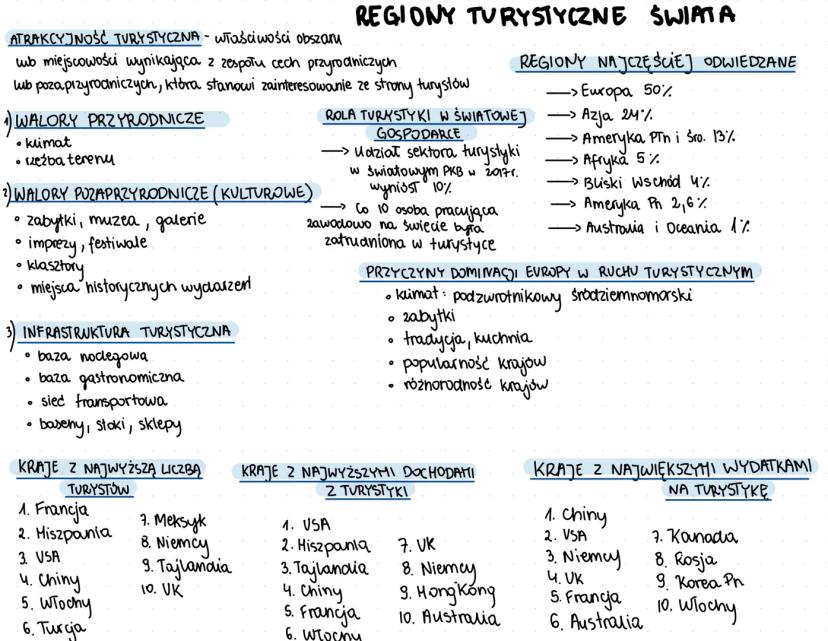 REGIONY TURYSTYCZNE ŚWIATA
ATRAKCYJNOŚĆ TURYSTYCZNA - właściwości obszaru
lub miejscowości wynikająca z zespołu cech przyrodniczych
lub pozaprzyrodniczych, która stanowi zainteresowanie ze strony turystów
1) WALORY PRZYRODNICZE
• klimat
• rzeźba terenu
2) WALORY POZAPRZYRODNICZE (KULTUROWE)
• zabytki, muzea, galerie
• imprezy, festiwale
• klasztory
• miejsca historycznych wydarzeń
3) INFRASTRUKTURA TURYSTYCZNA
• baza noclegowa
• baza gastronomiczna
• sieć transportowa
• baseny, stoki, sklepy
ROLA TURYSTYKI W ŚWIATOWEJ
GOSPODARCE
→ Udział sektora turystyki
w światowym PKB w 2017r.
wyniósł 10%
→ Co 10 osoba pracująca
zawodowo na świecie była
zatrudniona w turystyce
REGIONY NAJCZĘŚCIEJ ODWIEDZANE
→ Europa 50%
→ Azja 24%
→ Ameryka Płn i Śro. 13%
→ Afryka 5%
→ Bliski Wschód 4%
→ Ameryka Pn 2,6%
→ Australia i Oceania 1%
PRZYCZYNY DOMINACJI EUROPY W RUCHU TURYSTYCZNYM
• klimat: podzwrotnikowy śródziemnomorski
• zabytki
• tradycja, kuchnia
• popularność krajów
• różnorodność krajów
KRAJE Z NAJWYŻSZĄ LICZBĄ
TURYSTÓW
1. Francja
2. Hiszpania
3. USA
4. Chiny
5. Włochy
6. Turcja
7. Meksyk
8. Niemcy
9. Tajlandia
10. UK
KRAJE Z NAJWYŻSZYMI DOCHODAMI
Z TURYSTYKI
1. USA
2. Hiszpania
3. Tajlandia
4. Chiny
5. Francja
6. Włochy
7. UK
8. Niemcy
9. HongKong
10. Australia
KRAJE Z NAJWIĘKSZYMI WYDATKAMI
NA TURYSTYKĘ
1. Chiny
2. USA
3. Niemcy
4. UK
5. Francja
6. Australia
7. Kanada
8. Rosja
9. Korea Pn
10. Włochy